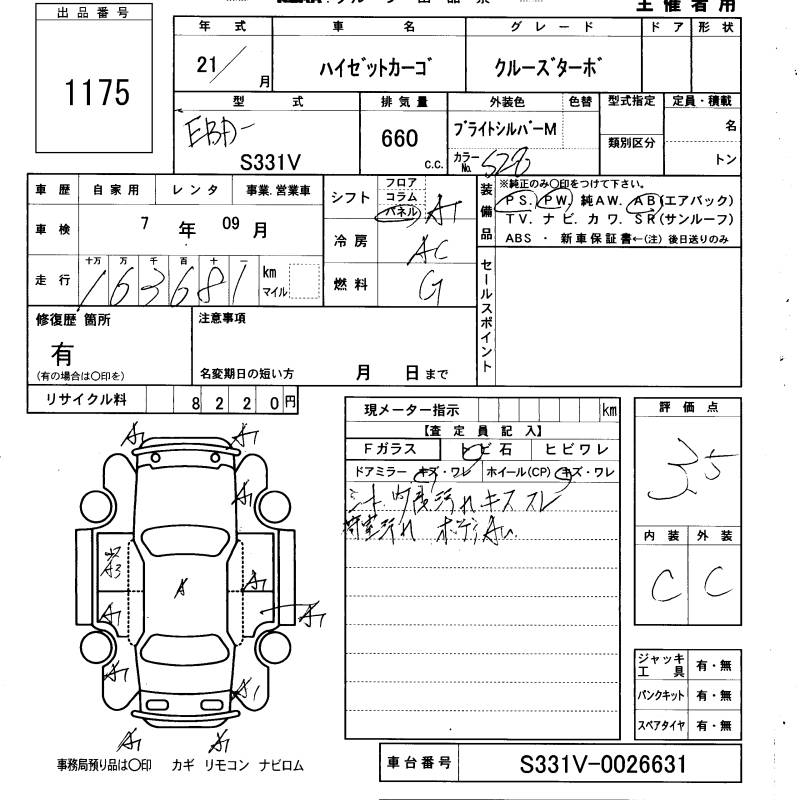 出品番号
1175
主催者用
年式 車名 グレード ドア 形状
21/月 ハイゼットカーゴ クルーズターボ
型式 排気量 外装色 色替 型式指定 定員・積載
EBD-
S331V
660 c.c.
ブライトシルバーM
カラーNo. S28
類別区分
名
トン
車歴 自家用 レンタ 事業.営業車
車検 7年 09月
走行 十万 万 千 百 十 一
163681 km マイル
シフト フロア コラム パネル AT
冷房 AC
燃料 G
装備品
※純正のみ〇印をつけて下さい。
PS. PW. 純AW. AB(エアバック)
TV. ナビ. カワ. SR(サンルーフ)
ABS ・ 新車保証書←(注) 後日送りのみ
セールスポイント
修復歴 箇所
有
(有の場合は〇印を)
注意事項
名変期日の短い方 月 日まで
リサイクル料 8220円
現メーター指示 km
【査定員記入】
Fガラス トビ石 ヒビワレ
ドアミラー キズ・ワレ ホイール(CP) キズ・ワレ
シート 内張汚れ キズ スレ
荷室汚れ
評価点
3.5
内装 外装
C C
ジャッキ工具 有・無
パンクキット 有・無
スペアタイヤ 有・無
A1 A1
A1
A3
A A1
A1 A1
A1 A1
A1 A1
事務局預り品は〇印 カギ リモコン ナビロム
車台番号 S331V-0026631